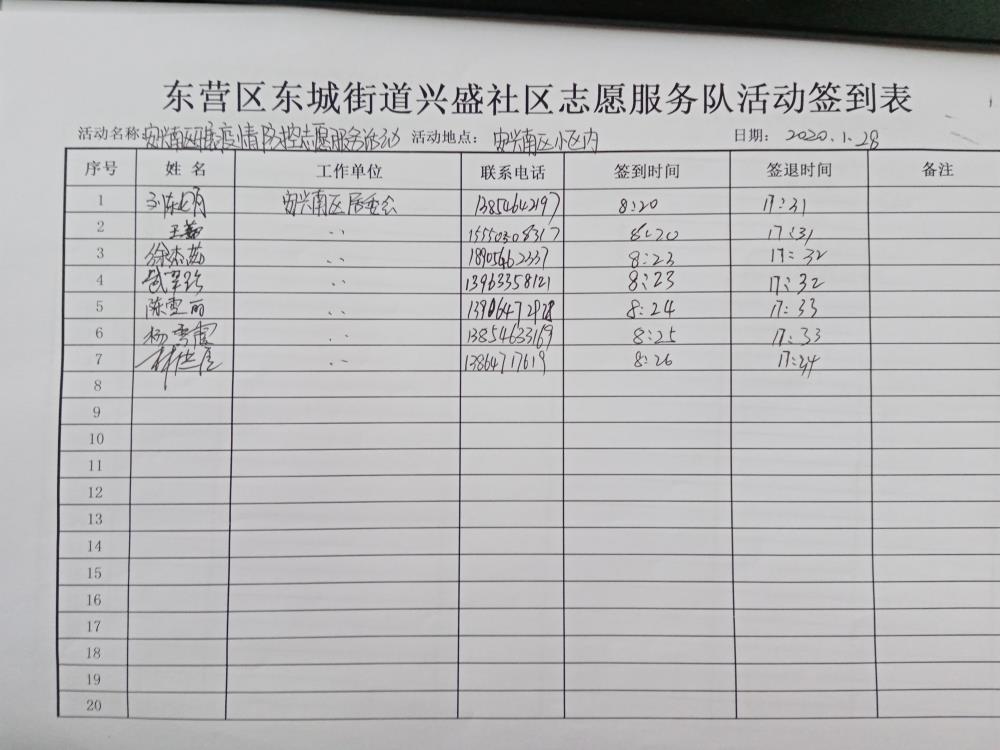 东营区东城街道兴盛社区志愿服务队活动签到表
活动名称 安兴南区居民疫情防控志愿服务活动 活动地点： 安兴南区小区内 日期： 2020.1.28
序号 姓名 工作单位 联系电话 签到时间 签退时间 备注
1 安兴南区居委会 13854642197 8:20 17:31
2 王 〃 15550308317 8:20 17:31
3 徐杰茹 〃 18905462337 8:23 17:32
4 〃 13963358121 8:23 17:32
5 陈雪丽 〃 8:24 17:33
6 杨雪 〃 13854633169 8:25 17:33
7 林 〃 13864717619 8:26
8
9
10
11
12
13
14
15
16
17
18
19
20